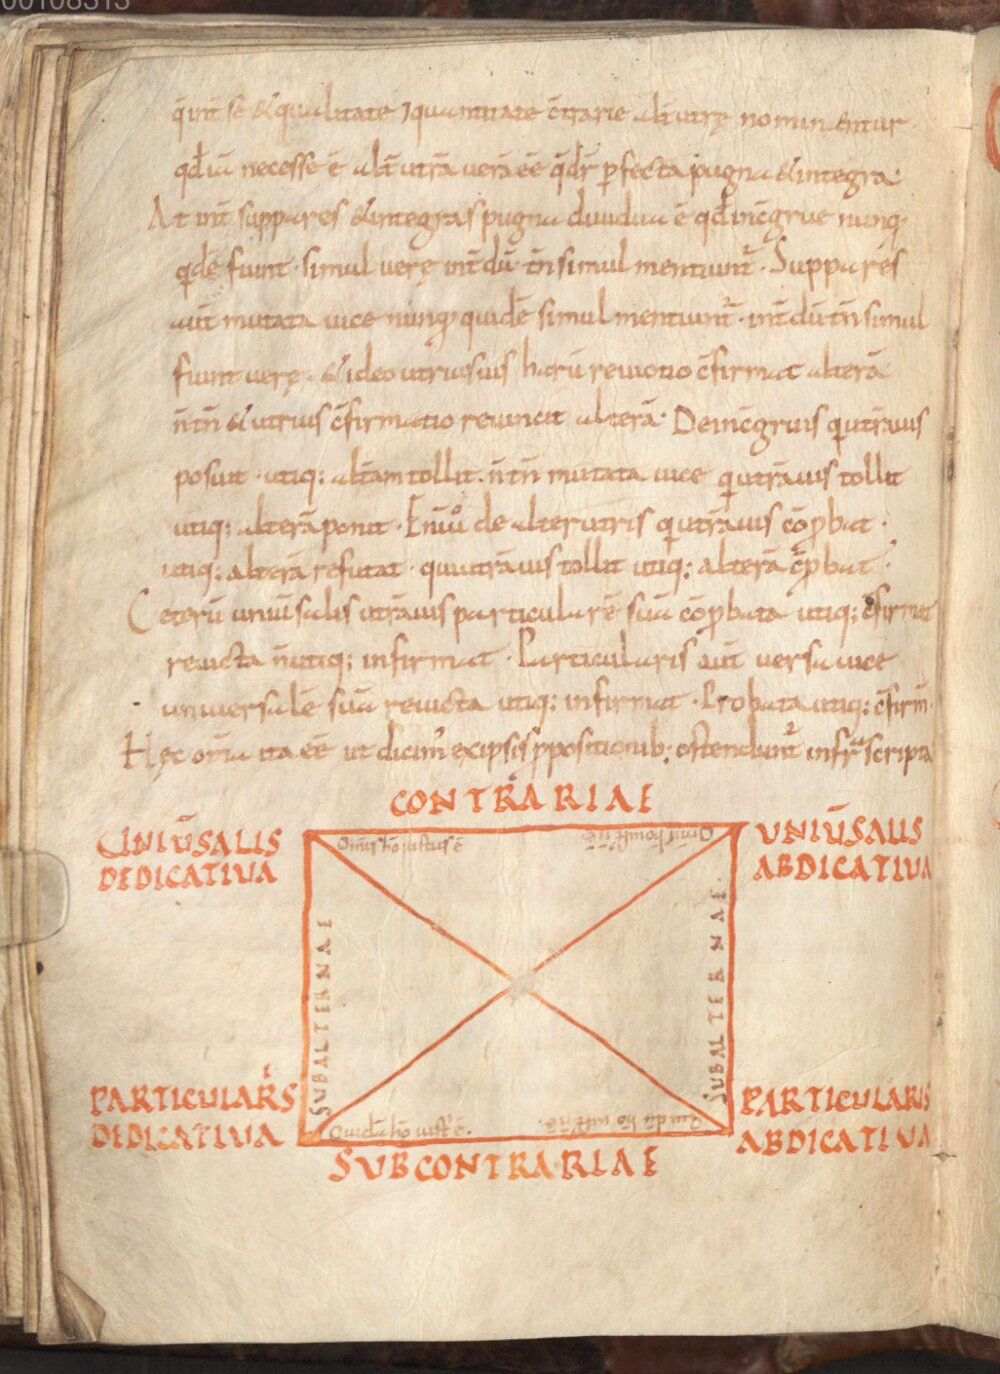 00108313
q̄ int̄ se & qualitate ⁊ quantitate c̄trarie alt̄utrę nominentur.
qđ iā necesse ē alt̄utrā verā ēē q̄ dr̄ pfecta pugna & integra.
At int̄ suppares & integras pugna diuidua ē qđ incgrue nunq
qdē fiunt. simul verę int̄dū tn̄ simul mentiunt̄. Suppares
aut̄ mutata uice nunq quidē simul mentiunt̄. int̄dū tn̄ simul
fiunt verę. & ideo utriusuis harū reuictio c̄firmat alterā
n̄ tn̄ & utriuis c̄firmatio reuincit alterā. De inc̄gruis q utrāuis
posuit. utiq; alt̄am tollit. n̄ tn̄ mutata uice q utrāuis tollit
utiq; alterā ponit. Enīuo de alterutris q utrāuis cōpbat
utiq; alterā refutat. qui utrāuis tollit utiq; alterā c̄pbat.
Ceterū uniūsalis utrāuis particularē suā cōpbata utiq; c̄firmat
reuicta n̄ utiq; infirmat. Particularis aut̄ versa uice
uniuersalē suā reuicta utiq; infirmat. Probata utiq; c̄firm̄.
Hęc om̄ia ita ēē ut dicim' ex ipsis ppositionib; ostendunt̄ infra scripta
CONTRARIAE
UNIŪSALIS
DEDICATIVA
Om̄is hō iustus ē
Om̄is hō iustus n̄ ē
UNIŪSALIS
ABDICATIVA
SUBALTERNAE
SUBALTERNAE
PARTICULARIS
DEDICATIVA
Quidā hō iust' ē.
Quidā hō iust' n̄ ē.
PARTICULARIS
ABDICATIVA
SUBCONTRARIAE